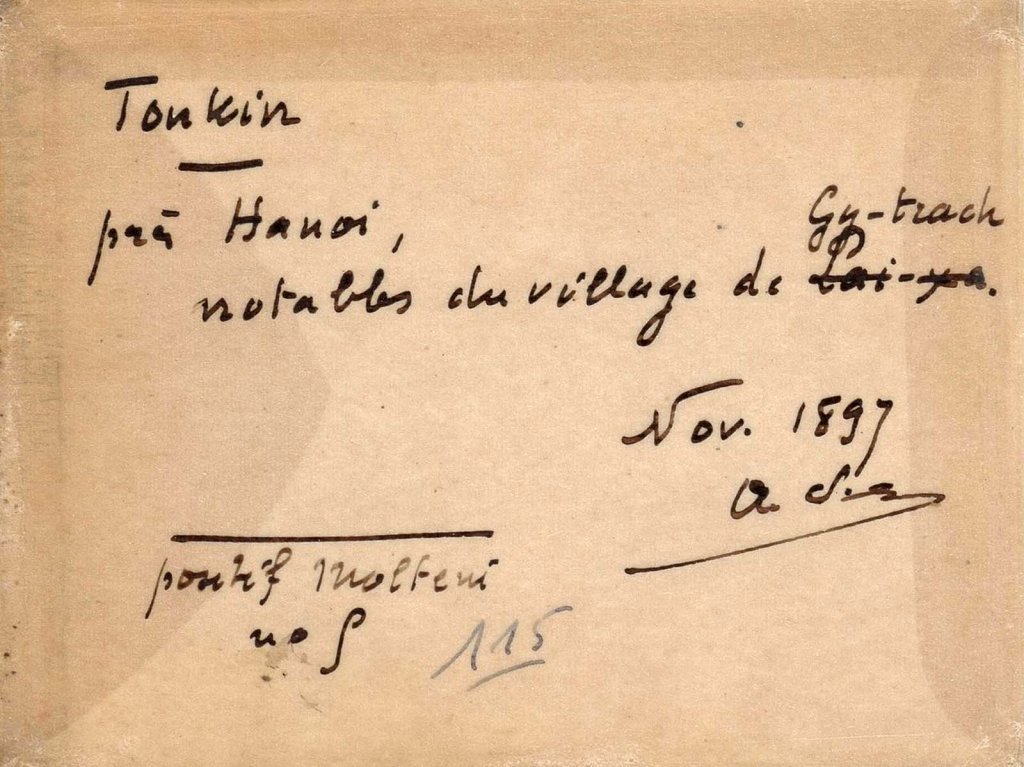 Tonkin
près Hanoi,
Gy-trach
notables du village de Lai-xa.
Nov. 1897
positif Molteni
no
115